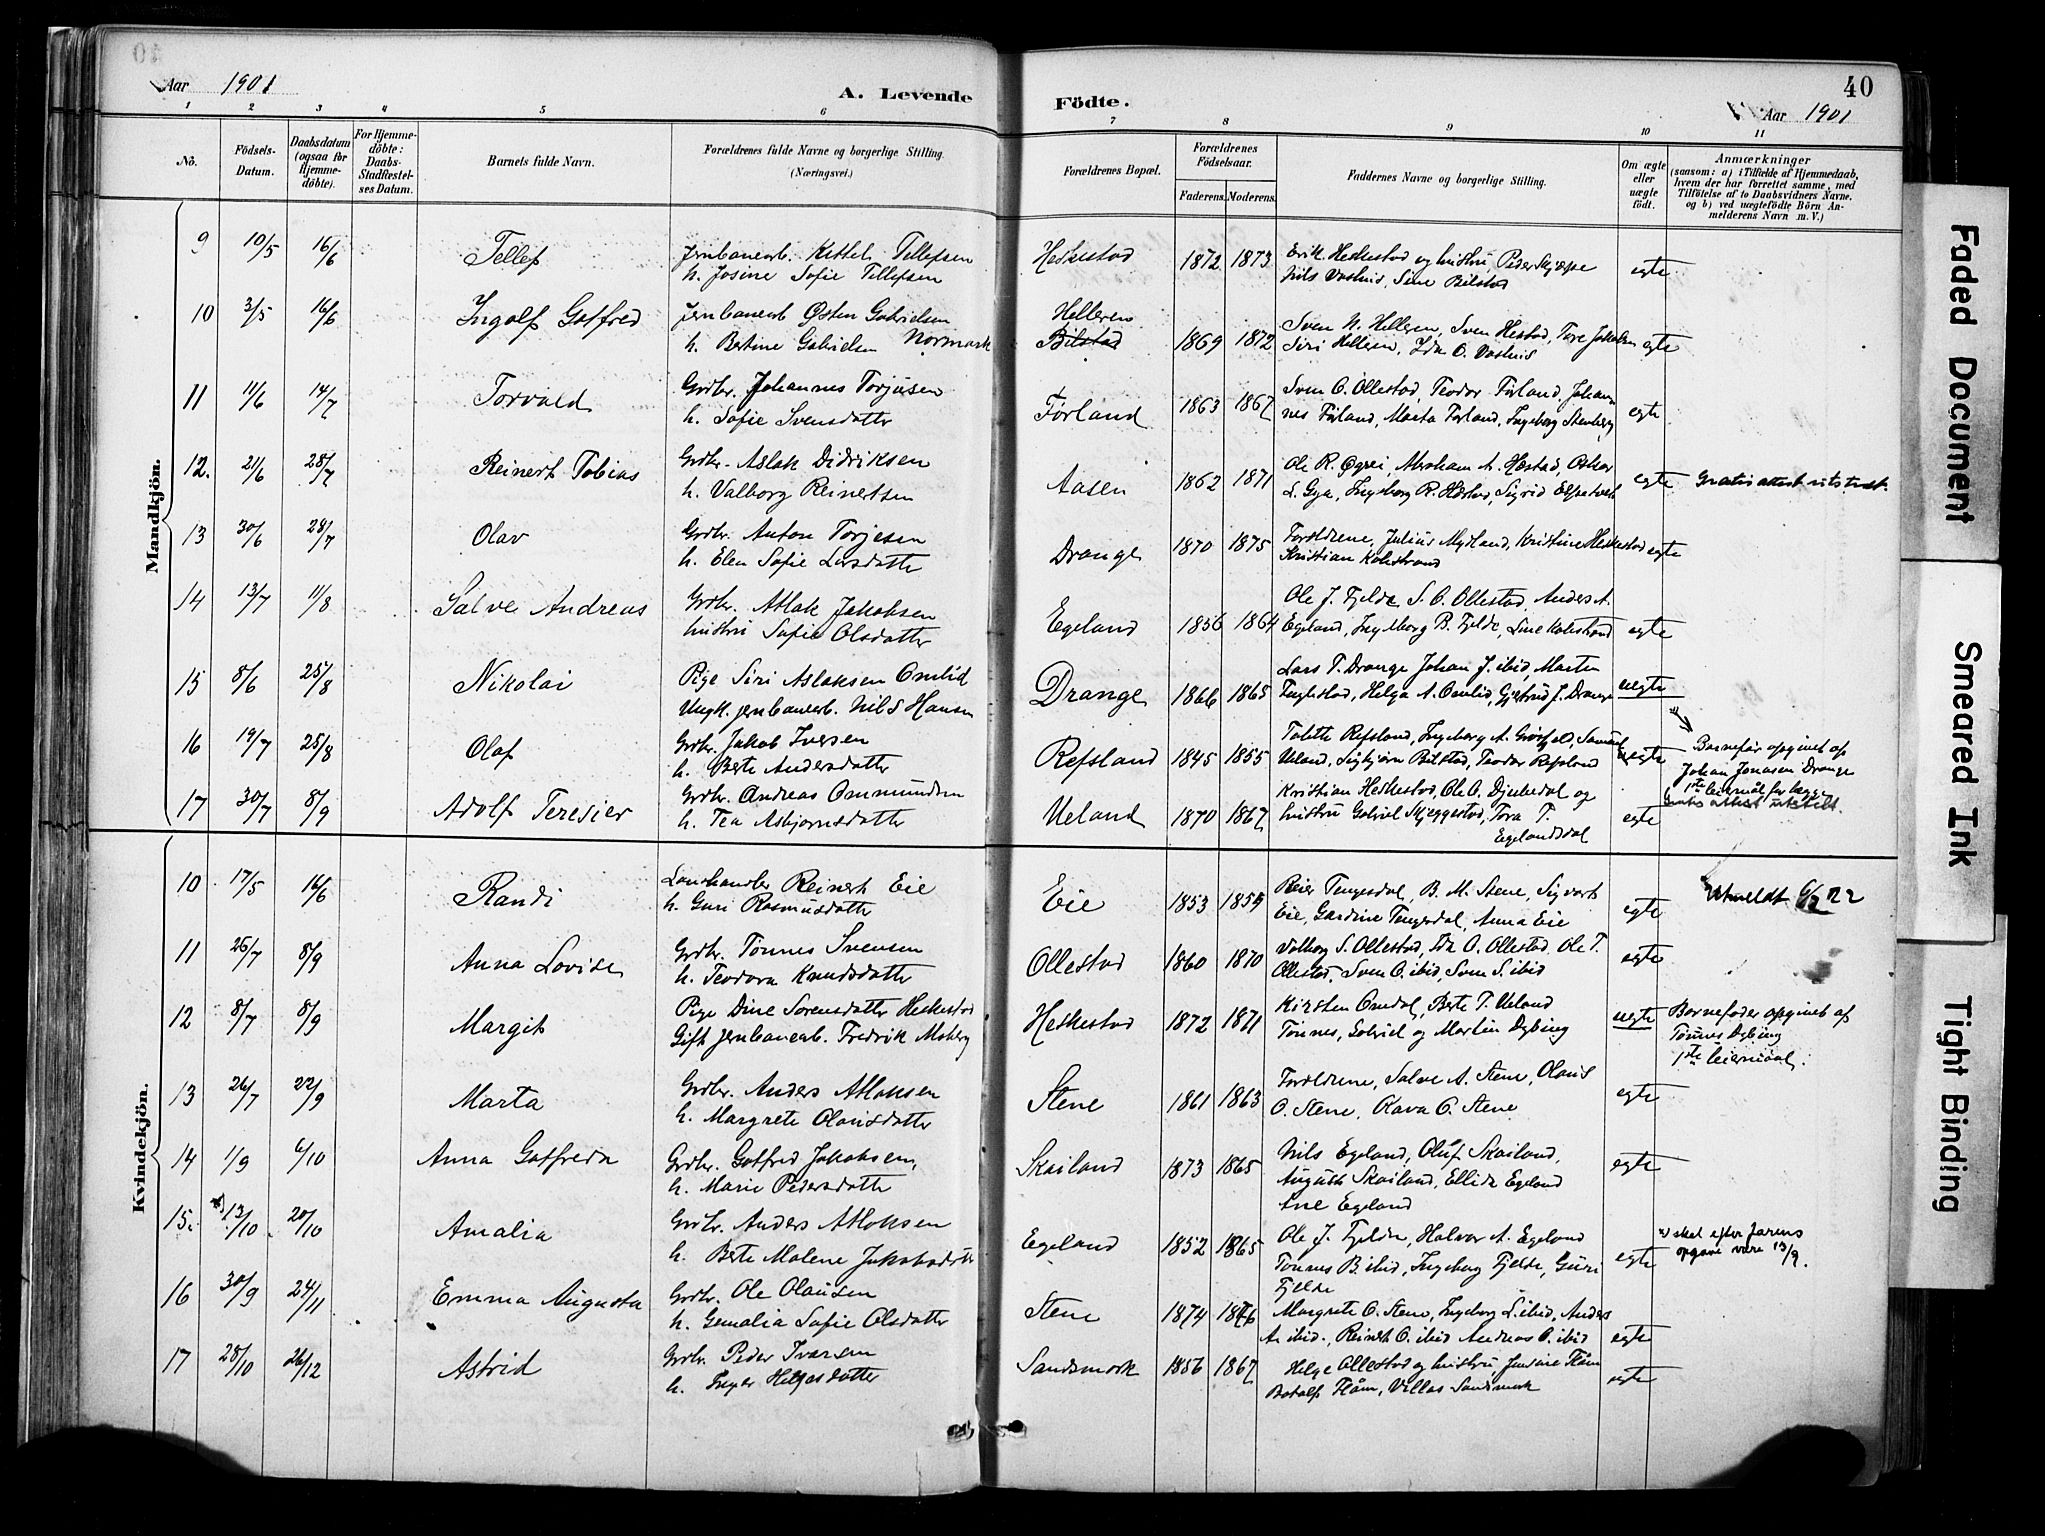 Aar 1901
A. Levende Födte.
40
Aar 1901
1 2 3 4 5 6 7 8 9 10 11
No.
Födsels-Datum.
Daabsdatum (ogsaa for Hjemme-döbte).
For Hjemme-döbte: Daabs-Stadfæstel-ses Datum.
Barnets fulde Navn.
Forældrenes fulde Navne og borgerlige Stilling.
(Næringsvei.)
Forældrenes Bopæl.
Forældrenes Födselsaar.
Faderens. Moderens.
Faddernes Navne og borgerlige Stilling.
Om ægte eller uægte födt.
Anmærkninger
(saasom: a) i Tilfælde af Hjemmedaab,
hvem der har forrettet samme, med
Tilföielse af to Daabsvidners Navne,
og b) ved uægtefödte Börn An-
melderens Navn m. V.)
Mandkjön.
9 10/5 16/6 Tellef Jernbanearb. Kittel Tellefsen Heskestad 1872 1873 Erik Heskestad og hustru, Peder Skjæpe egte
h. Josine Sofie Tellefsen Nils Vashus, Sine Bilstad
10 3/5 16/6 Ingolf Gotfred Jernbanearb Østen Gabrielsen Helleren
h. Bertine Gabrielsen Normark Bilstad 1869 1872 Sven N. Helleren, Sven Hestad, Tore Jakobsen egte
Siri Helleren, Ida O. Vashus
11 11/6 14/7 Torvald Grdbr. Johannes Torjusen Förland 1863 1867 Sven O. Ollestad, Teodor Förland, Johan- egte
h. Sofie Svensdatter nes Förland, Marta Förland, Ingeborg Stenberg
12. 21/6 28/7 Reinert Tobias Grdbr. Aslak Didriksen Aasen 1862 1871 Ole R. Øgrei, Abraham A. Hæstad, Oskar egte Gratis attest utstedt.
h. Valborg Reinertsen L. Gya, Ingeborg R. Hæstad, Sigrid
13 30/6 28/7 Olav Grdbr. Anton Torjesen Drange 1870 1875 Forældrene, Julius Mydland, Kristine Heskestad egte
h. Elen Sofie Larsdatter Kristian Kolstrand
14 13/7 11/8 Salve Andreas Grdbr. Atlak Jakobsen Egeland 1856 1864 Ole J. Fjelde, S. O. Ollestad, Anders A.
hustru Sofie Olsdatter Egeland, Ingeborg B. Fjelde, Line Kolstrand egte
15 8/6 25/8 Nikolai Pige Siri Aslaksen Omlid Drange 1866 1865 Lars T. Drange Johan J. ibid, Marten uegte
Ungk. jernbanearb. Nils Hansen Tengesdal, Helga A. Omlid, Gjertrud J. Drange
16 19/7 25/8 Olaf Grdbr. Jakob Iversen Refsland 1845 1855 Tolette Refsland, Ingeborg A. Grösfjeld, Samuel egte Barnefar opgivet af
h. Berte Andersdatter Ueland, Sigbjørn Bilstad, Teodor Refsland Johan Jonasen Drange
1ste leiermål for begge
17 30/7 8/9 Adolf Teresier Grdbr. Andreas Ommundsen Ueland 1870 1867 Kristian Heskestad, Ole O. Djubedal og egte Gratis attest utstedt.
h. Tea Asbjørnsdatter hustru Gabriel Skjeggestad, Tora T.
Egelandsdal
Kvindekjön.
10 17/5 16/6 Randi Lanshandler Reinert Eie Eie 1853 1859 Reier Tengesdal, B. M. Stene, Sigvart egte Utmeldt 6/2 22
h. Guri Rasmusdatter Eie, Gardine Tengesdal, Anna Eie
11 26/7 8/9 Anna Lovise Grdbr. Tönnes Svensen Ollestad 1860 1870 Valborg S. Ollestad, Ida O. Ollestad Ole T. egte
h. Teodora Knudsdatter Ollestad, Sven O. ibid, Sven S. ibid
12 8/7 8/9 Margit Pige Dine Sørensdatter Heskestad Heskestad 1872 1871 Kirsten Omdal, Berte T. Ueland uegte Barnefader opgivet af
Gift jernbanearb. Fredrik Moberg Tönnes, Gabriel og Martin Dybing Tönnes Dybing
1ste leiermaal.
13 26/7 22/9 Marta Grdbr. Anders Atlaksen Stene 1861 1863 Forældrene, Salve A. Stene, Olaus egte
h. Margrete Olausdatter O. Stene, Kava O. Stene
14 1/9 6/10 Anna Gotfreda Grdbr. Gotfred Jakobsen, Skailand 1873 1865 Nils Egeland, Oluf Skailand, egte
h. Marie Pedersdatter August Skailand, Ellida Egeland
Ane Egeland
15. x) 13/10 20/10 Amalia Grdbr. Anders Atlaksen Egeland 1852 1865 Ole J. Fjelde, Halvor A. Egeland egte x) skal efter farens
h. Berte Malene Jakobsdatter Tönnes B. ibid, Ingeborg Fjelde, Guri opgave være 13/9.
Fjelde
16 30/9 24/11 Emma Augusta Grdbr. Ole Olausen Stene 1874 1876 Margrete O. Stene, Ingeborg S. ibid, Anders
h. Gemalia Sofie Olsdatter A. ibid, Reinert O. ibid Andreas O. ibid egte
17 28/10 26/12 Astrid Grdbr. Peder Ivarsen Sandsmark 1856 1867 Helge Ollestad og hustru, Jensine Flåm egte
h. Inger Helgesdatter Botolf Flåm, Villas Sandsmark
Faded Document
Smeared Ink
Tight Binding